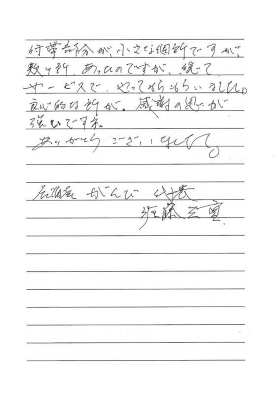 付帯部分が小さな個所ですが、
数ヶ所あったのですが、続て
サービスで、やってもらいました。
良心的な所が、感謝の思いが
強いです。
ありがとうございました。
居酒屋 がんび 代表